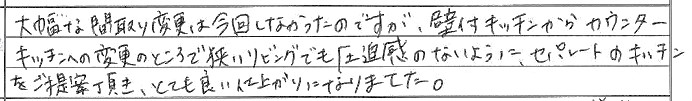 大幅な間取り変更は今回しなかったのですが、壁付キッチンからカウンター
キッチンへの変更のところで狭いリビングでも圧迫感のないように、セパレートのキッチン
をご提案頂き、とても良い仕上がりになりました。